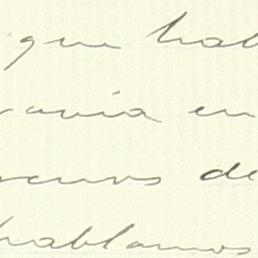 que hab
avia en
curos de
hablamos